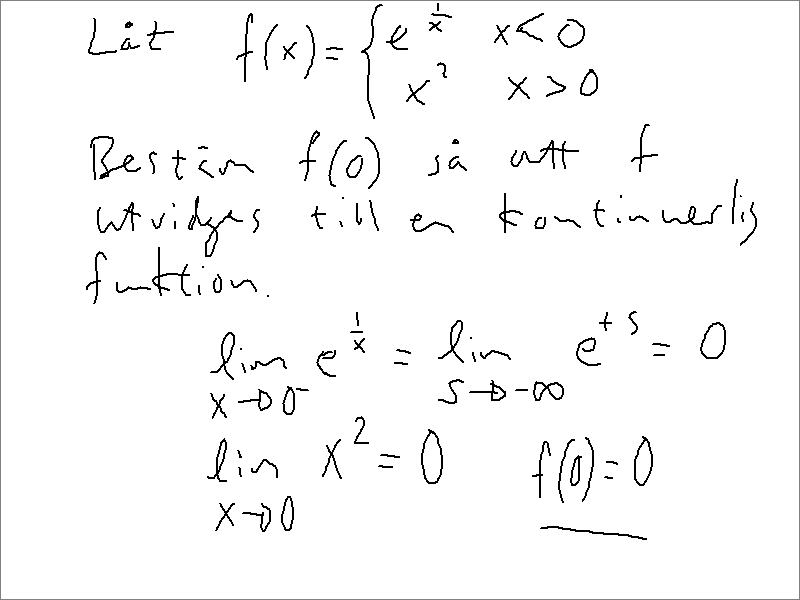 Låt f(x) = { e^{1/x} x < 0
x² x > 0
Bestäm f(0) så att f
utvidges till en kontinuerlig
funktion.
lim_{x→0⁻} e^{1/x} = lim_{s→-∞} e^{+s} = 0
lim_{x→0} x² = 0 f(0) = 0